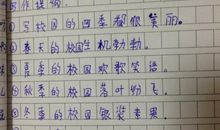 ①写校园的四季都很美丽。
②春天的校园生机勃勃。
③夏季的校园欢歌笑语。
④秋季的校园落叶纷飞。
⑤冬季的校园银装素裹。